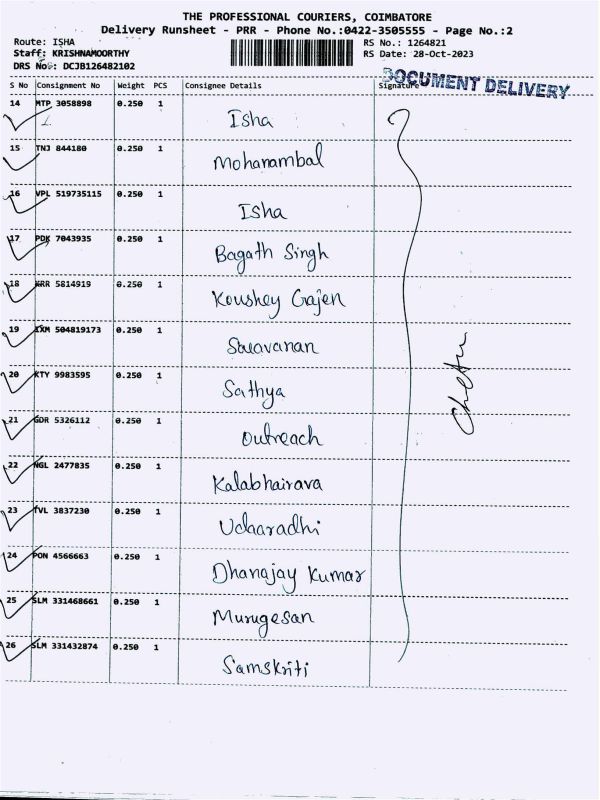 THE PROFESSIONAL COURIERS, COIMBATORE
Delivery Runsheet - PRR - Phone No.:0422-3505555 - Page No.:2
Route: ISHA RS No.: 1264821
Staff: KRISHNAMOORTHY RS Date: 28-Oct-2023
DRS No: DCJB126482102
DOCUMENT DELIVERY
S No Consignment No Weight PCS Consignee Details Signature
14 MTP 3058898 0.250 1 Isha
15 TNJ 844180 0.250 1 Mohanambal
16 VPL 519735115 0.250 1 Isha
17 PDK 7043935 0.250 1 Bagath Singh
18 KRR 5814919 0.250 1 Koushey Gajen
19 IXM 504819173 0.250 1 Saravanan
20 KTY 9983595 0.250 1 Sathya
21 GDR 5326112 0.250 1 Outreach
22 NGL 2477835 0.250 1 Kalabhairava
23 TVL 3837230 0.250 1 Udaaradhi
24 PON 4566663 0.250 1 Dhanajay Kumar
25 SLM 331468661 0.250 1 Murugesan
26 SLM 331432874 0.250 1 Samskriti